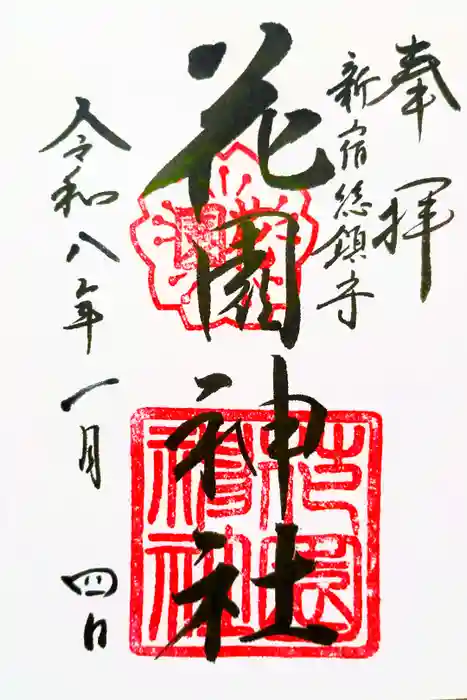 奉拝
新宿総鎮守
花園神社
令和八年一月四日
花園
神社